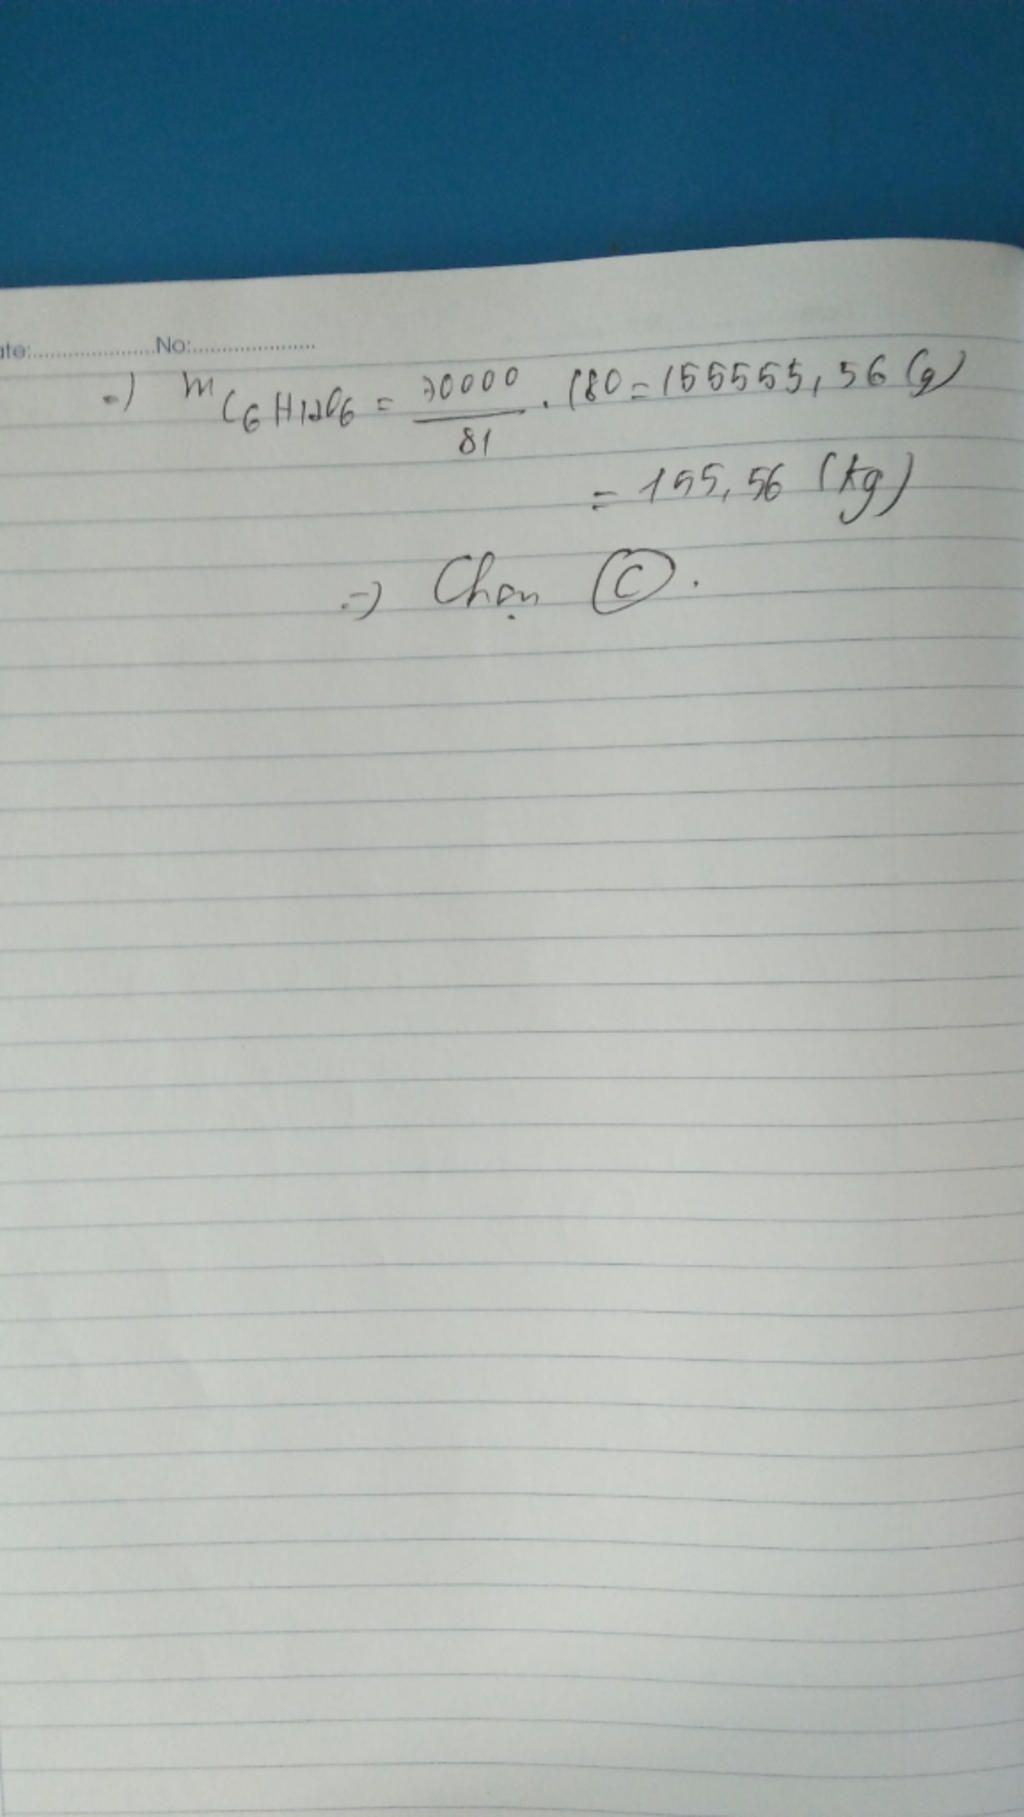 ate:.....................No:.....................
=) mC6H12O6 = 70000/81 . 180 = 155555,56 (g)
= 155,56 (kg)
=) Chọn C.